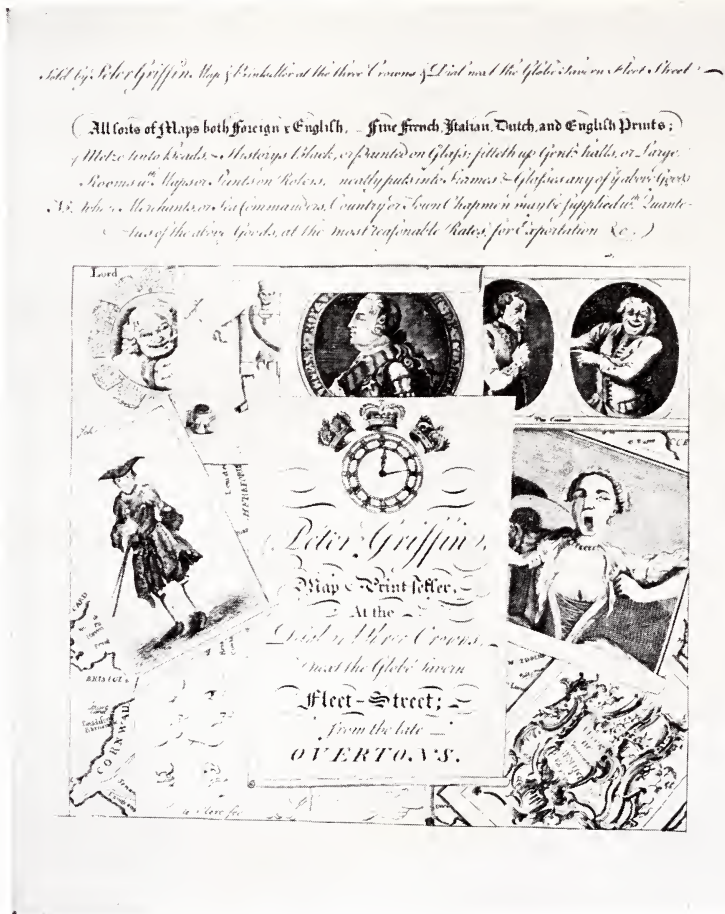 Sold by Peter Griffin Map & Printseller at the three Crowns & Dial next the Globe Tavern Fleet Street
( All sorts of Maps both Foreign & English, Fine French, Italian, Dutch, and English Prints;
Metzo tinto Heads, Historys Black, or Painted on Glass; fitteth up Gent.s halls, or Large
Rooms wth Maps or Prints on Rolers, neatly puts into Frames & Glasses any of ye above Goods
NB. where Merchants, or Sea Commanders, Country or Town Chapmen may be supplied wth Quante-
ties of the above Goods, at the most reasonable Rates, for Exportation &c. )
Lord
ROYAL
Peter Griffin,
Map & Print seller,
At the
Dial & Three Crowns,
next the Globe Tavern
Fleet-Street;
from the late
OVERTONS.
BRISTOL
CORNWALL